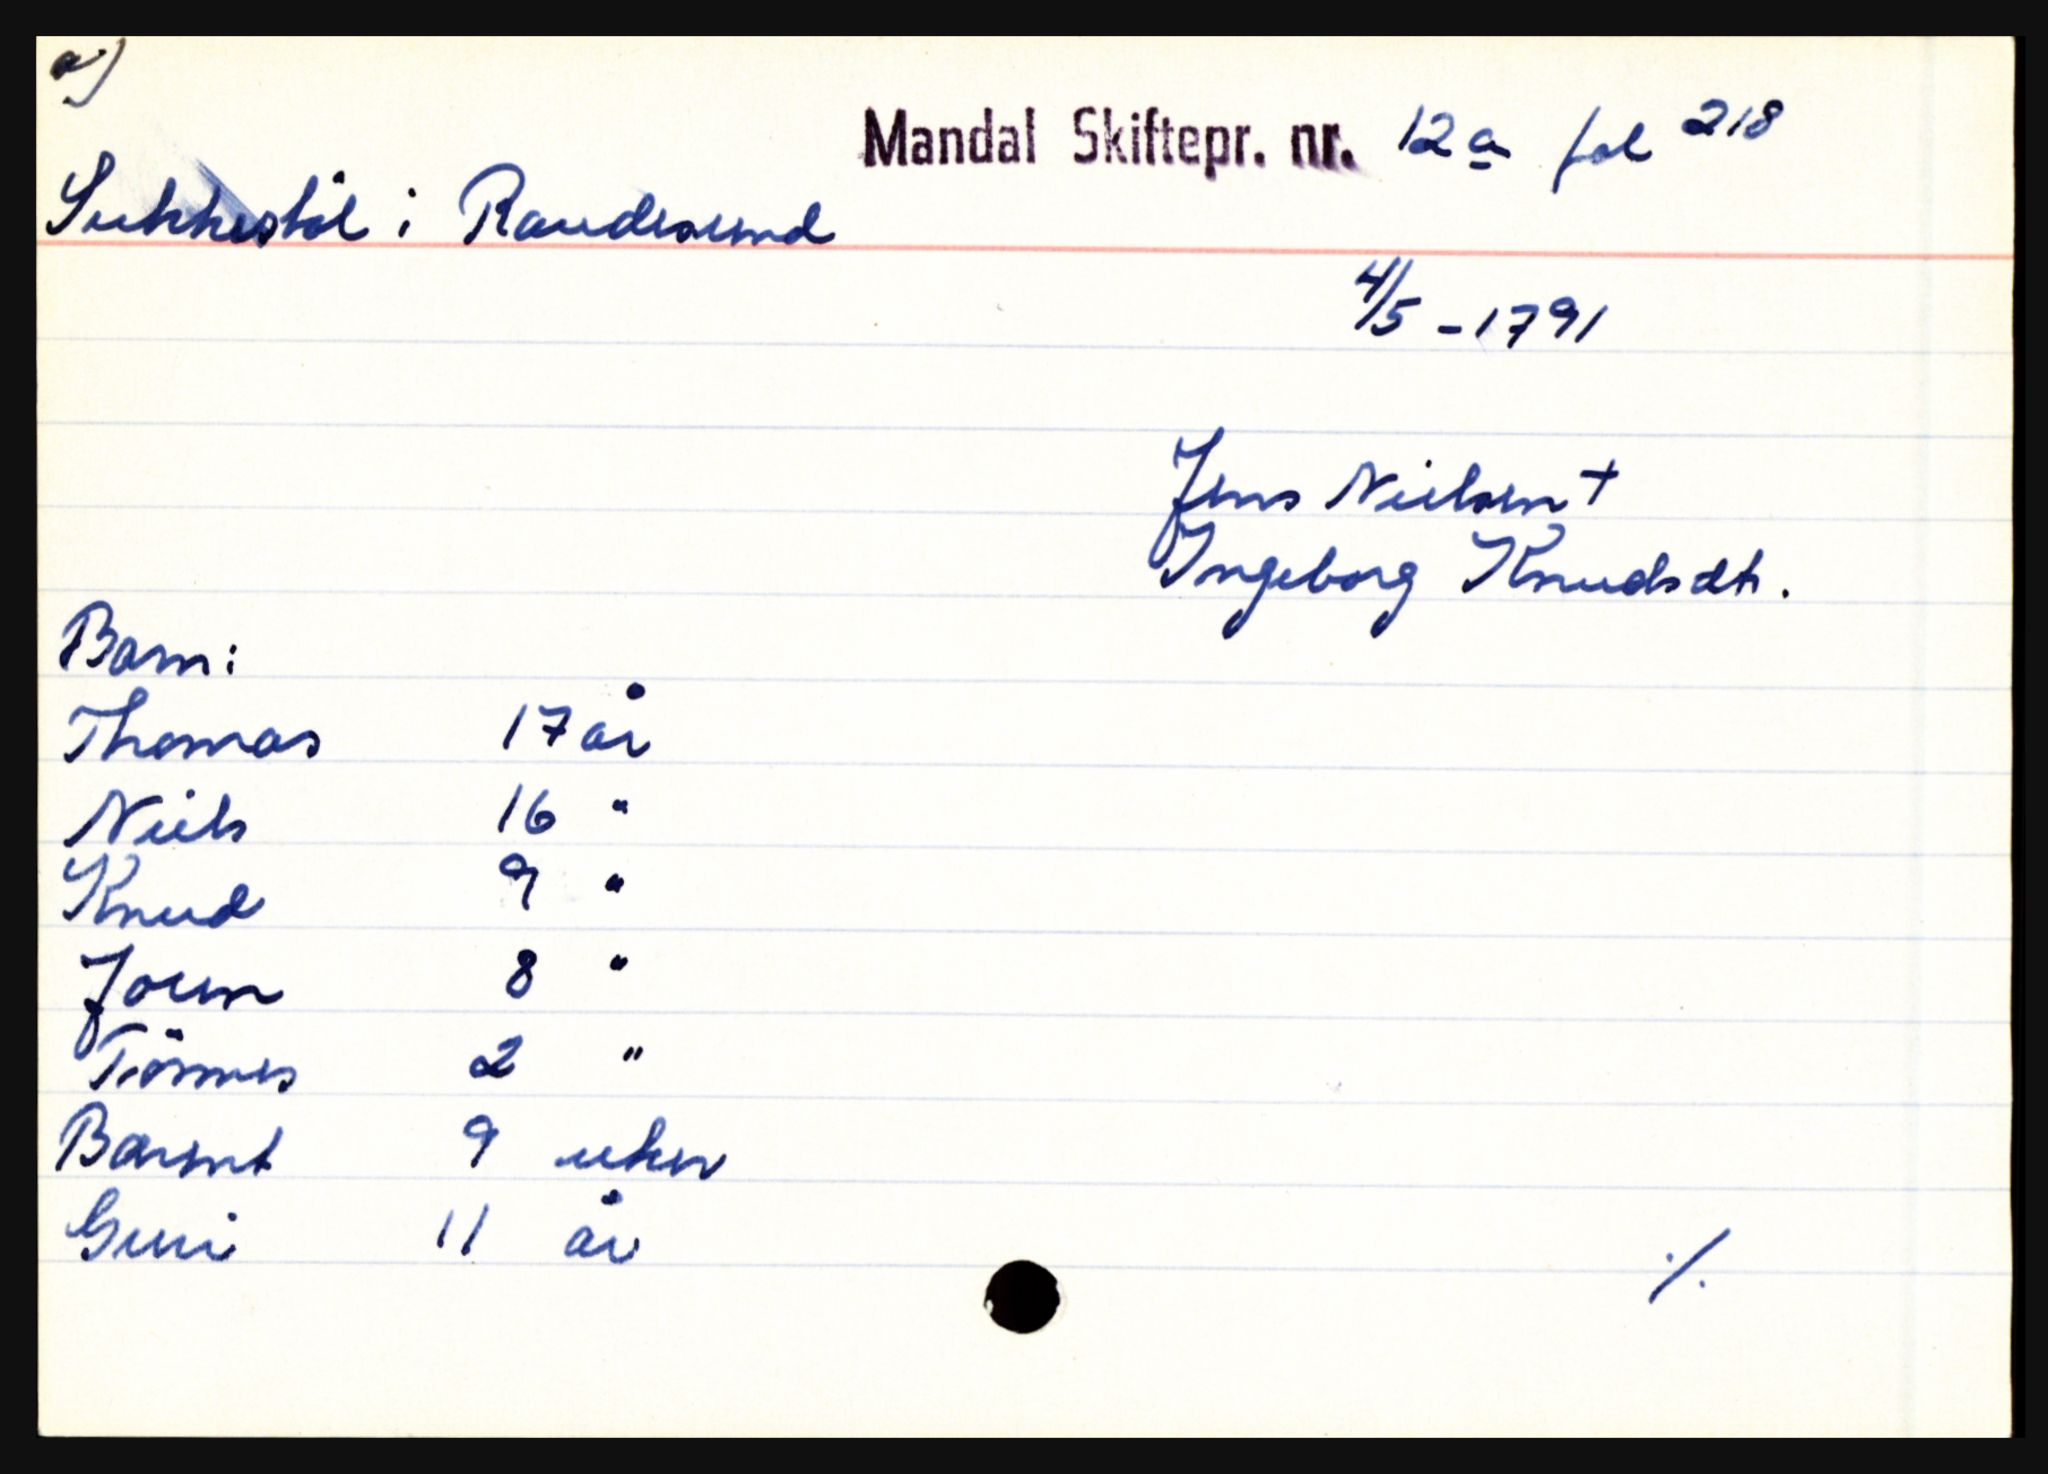 a)
Mandal Skiftepr. nr. 12a fol 218
Sukkestøl i Randesund
4/5 - 1791
Jens Nielsen +
Ingeborg Knudsdtr.
Barn:
Thomas 17 år
Niels 16 "
Knud 9 "
Joren 8 "
Törres 2 "
Barent 9 uker
Guri 11 år
./.